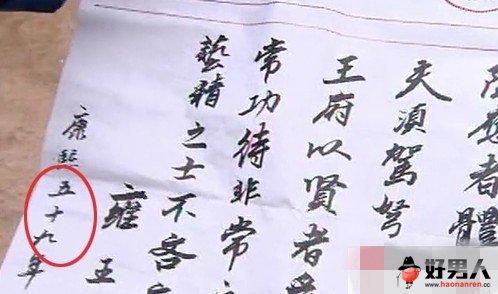 者體
天須駕弩
王府以賢者
常功待非常
藝精之士不吝
雍王
康熙五十九年
好男人
www.haonanren.cc